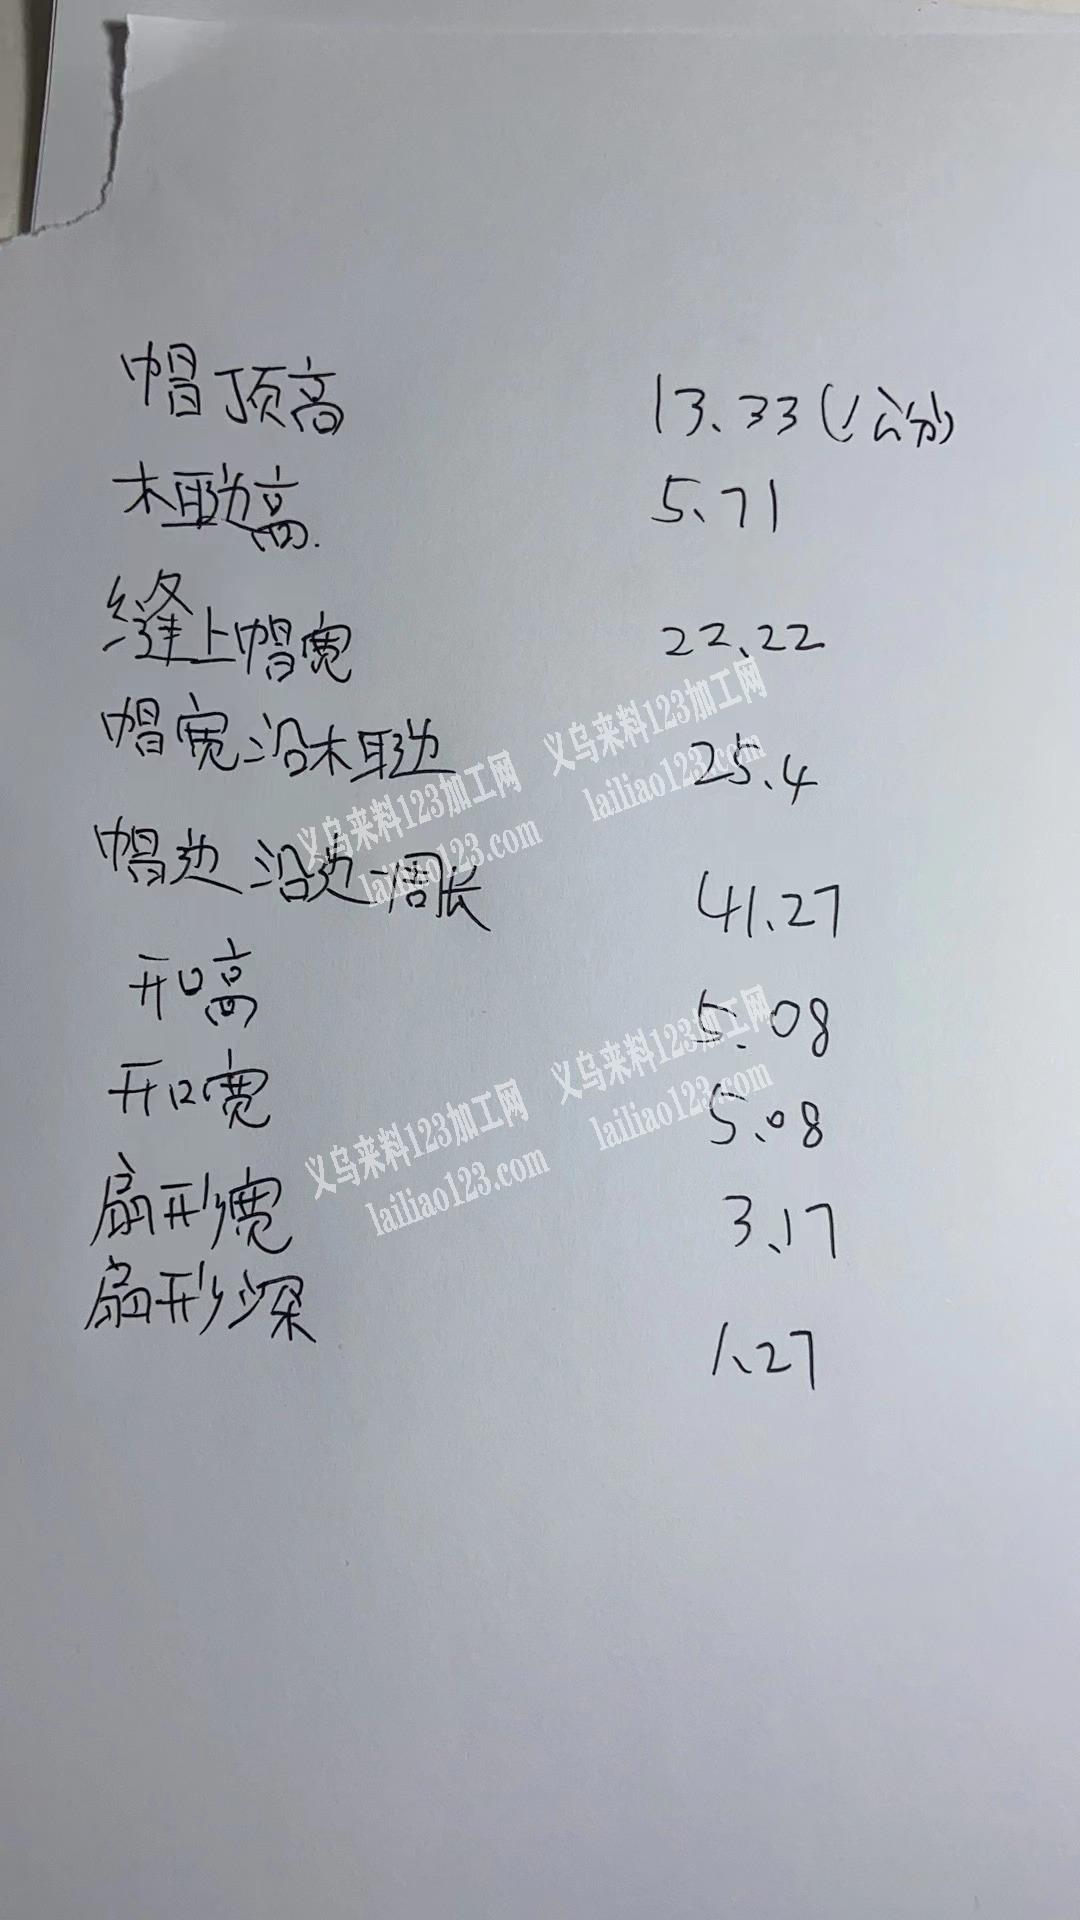 帽顶高 13.33(公分)
木耳边高 5.71
缝上帽宽 22.22
帽宽沿木耳边 25.4
帽边沿边一周长 41.27
开口高 5.08
开口宽 5.08
扇形宽 3.17
扇形深 1.27
义乌来料123加工网 义乌来料123加工网
lailiao123.com lailiao123.com
义乌来料123加工网 义乌来料123加工网
lailiao123.com lailiao123.com